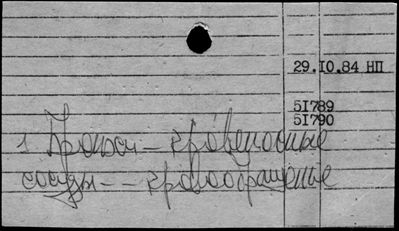 29.10.84 НП
51789
51790
1 Тромбоз – кровеносные
сосуды – – кровообращение